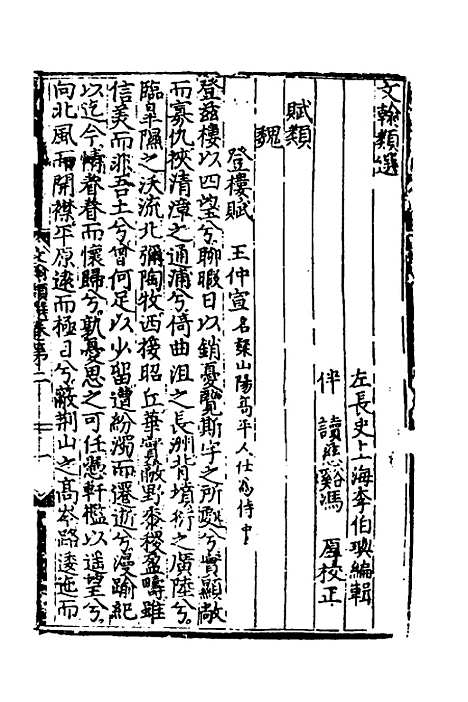 文翰類選
左長史上海李伯璵編輯
伴讀慈谿馮厚校正
賦類
魏
登樓賦 王仲宣名粲山陽高平人仕為侍中
登茲樓以四望兮聊暇日以銷憂覽斯宇之所處兮實顯敞
而寡仇挾清漳之通浦兮倚曲沮之長洲背墳衍之廣陸兮
臨皐隰之沃流北彌陶牧西接昭丘華實蔽野黍稷盈疇雖
信美而非吾土兮曾何足以少留遭紛濁而遷逝兮漫踰紀
以迄今情眷眷而懷歸兮孰憂思之可任憑軒檻以遥望兮
向北風而開襟平原遠而極目兮蔽荆山之高岑路逶迤而
文翰類選卷第二